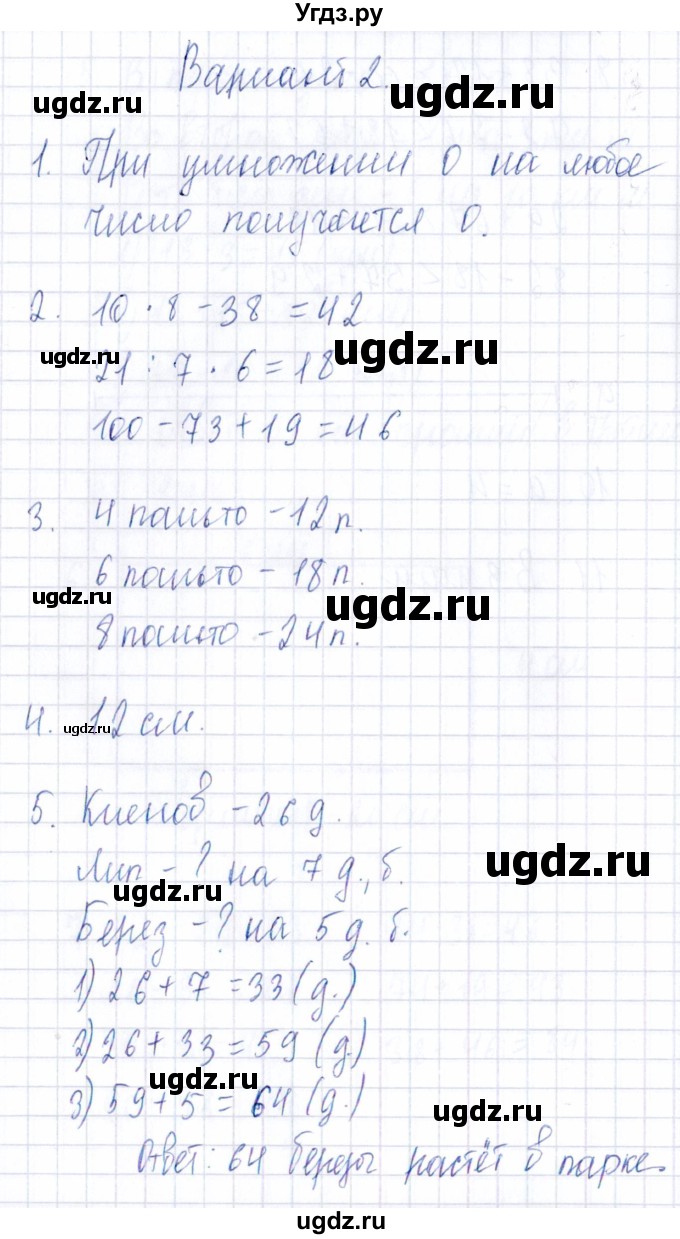 Угдз.ру
Вариант 2.
ugdz.ru
ugdz.ru
1. При умножении 0 на любое
число получается 0.
ugdz.ru
2. 10 · 8 - 38 = 42
ugdz.ru
ugdz.ru
21 : 7 · 6 = 18
100 - 73 + 19 = 46
3. 4 пальто - 12 п.
6 пальто - 18 п.
ugdz.ru
ugdz.ru
8 пальто - 24 п.
4. 12 см.
ugdz.ru
5. Кленов - 26 д.
Лип - ? на 7 д., б.
ugdz.ru
ugdz.ru
Берез - ? на 5 д. б.
1) 26 + 7 = 33 (д.)
2) 26 + 33 = 59 (д.)
ugdz.ru
3) 59 + 5 = 64 (д.)
ugdz.ru
Ответ: 64 березы растёт в парке.
ugdz.ru